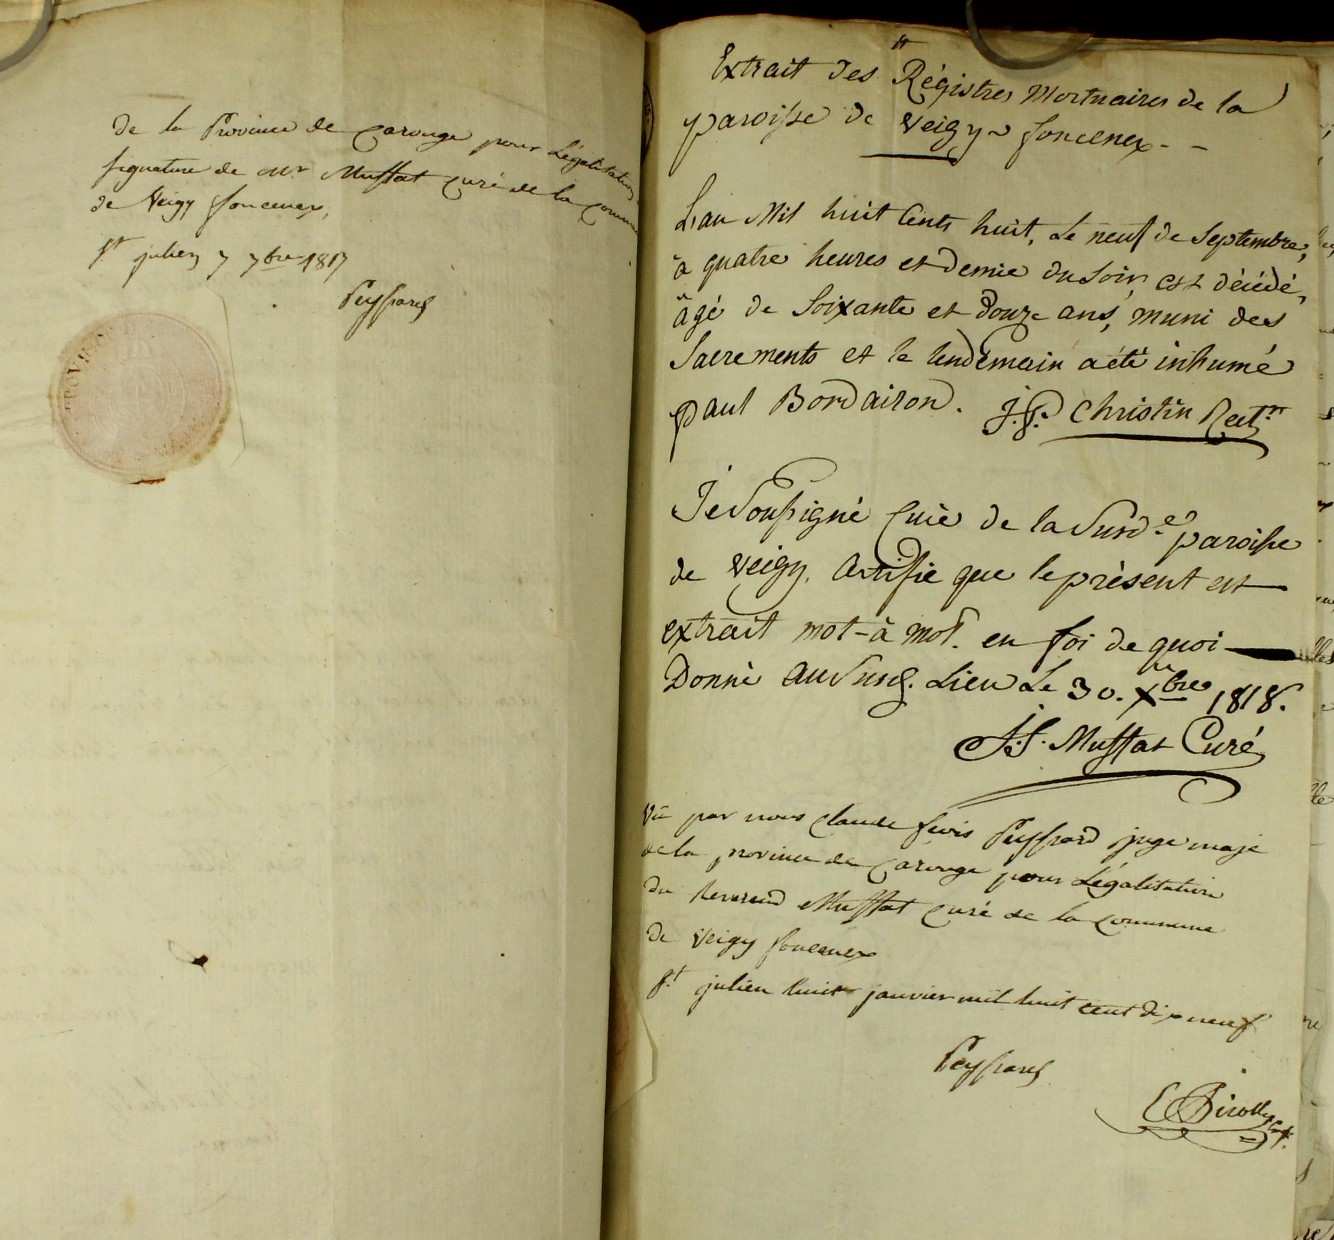 de la Province de Carouge pour Légalisation
signature de Mr Muffat Curé de la Commu
de Veigy foncenex,
St julien 7 7bre 1817
Peyssard
PROVIN
Extrait des Régistres Mortuaires de la
paroisse de Veigy foncenex. -
L'an Mil huit Cents huit, Le neuf de Septembre,
à quatre heures et demie du Soir, est décédé,
âgé de Soixante et douze ans, muni des
Sacrements et le lendemain a été inhumé
paul Bordairon. J. P. Christin Rectr
Je Soussigné Curé de la Susd.e paroisse
de Veigy, Certifie que le présent est
extrait mot-à mot. en foi de quoi
Donné au Susd. Lieu Le 30. Xbre 1818.
J. f. Muffat Curé
Vu par nous Claude Peyssard juge maje
de la province de Carouge pour Légalisation
du Reverend Muffat Curé de la Commune
de Veigy foncenex
St julien huit janvier mil huit cent dix neuf
Peyssard